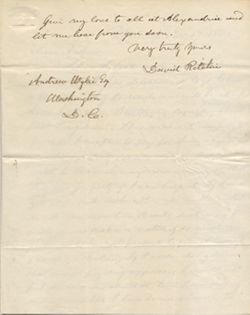 Give my love to all at Alexandria and
let me hear from you soon.
Very truly yours
David Ritchie
Andrew Wylie Esq
Washington
D. Co.